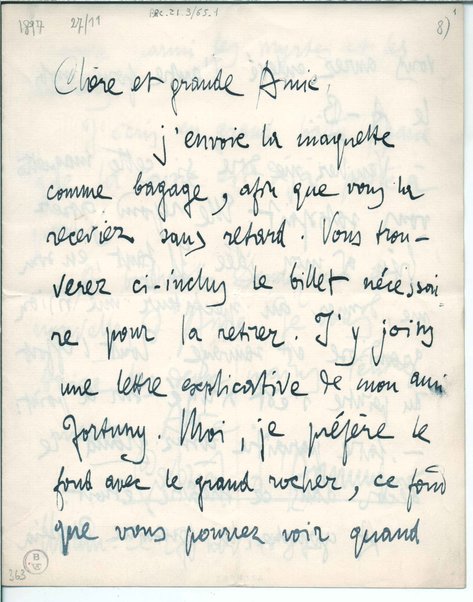 1897 27/11
ARC.21.3/65.1
8)
Chère et grande Amie,
j'envoie la maquette
comme bagage, afin que vous la
receviez sans retard. Vous trou-
verez ci-inclus le billet nécessai
re pour la retirer. J'y joins
une lettre explicative de mon ami
Fortuny. Moi, je préfère le
fond avec le grand rocher, ce fond
que vous pourrez voir quand
363